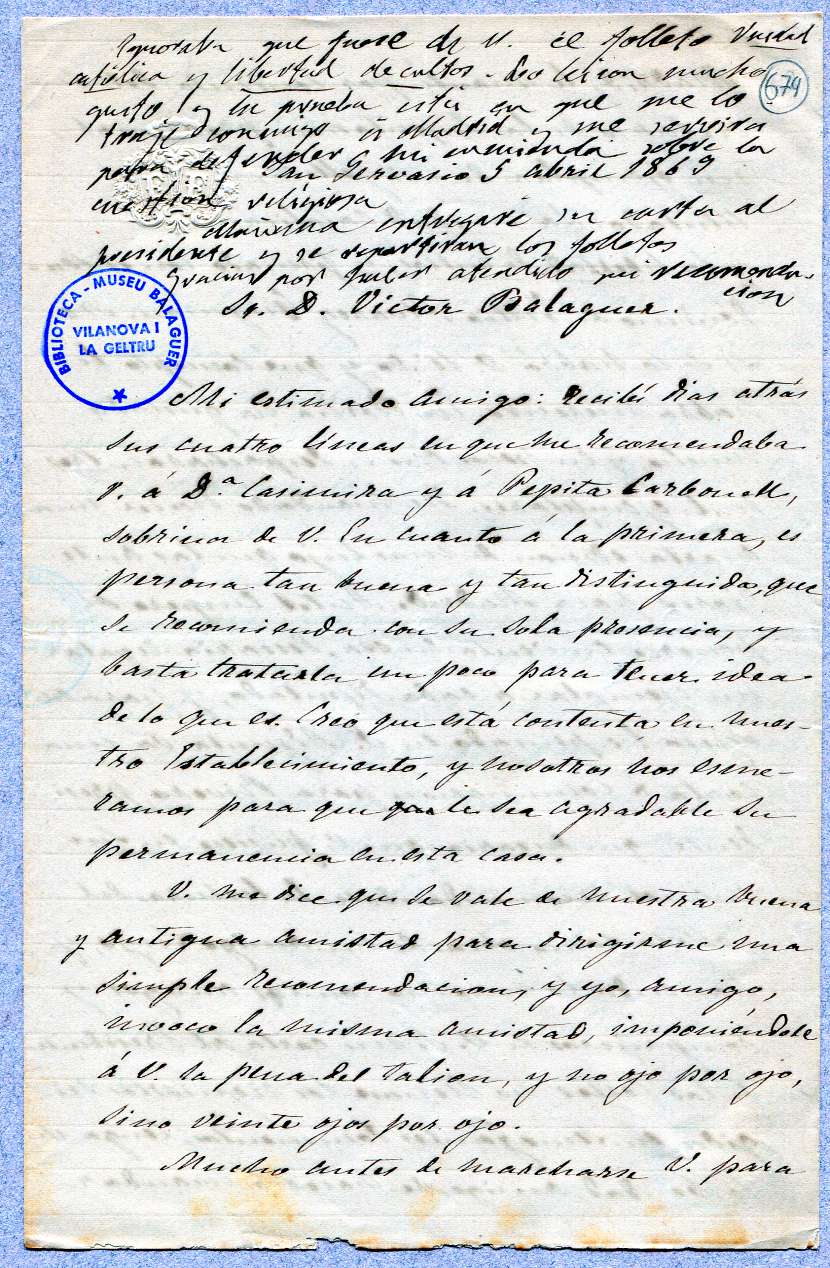 Ignoraba que fuese de V. el folleto Unidad
católica y libertad de cultos. Lo leí con mucho
gusto y la prueba está en que me lo
traje conmigo á Madrid y me servira
para defender mi enmienda sobre la
cuestion religiosa
Mañana entregaré su carta al
presidente y se repartiran los folletos
Gracias por haber atendido mi recomenda-
cion
679
San Gervasio 5 abril 1869
Sr. D. Victor Balaguer.
BIBLIOTECA - MUSEU BALAGUER
VILANOVA I
LA GELTRU
Mi estimado amigo: recibí dias atrás
sus cuatro líneas en que me recomendaba
V. á D.ª Casimira y á Pepita Carbonell,
sobrina de V. En cuanto á la primera, es
persona tan buena y tan distinguida, que
se recomienda con su sola presencia, y
basta tratarla un poco para tener idea
de lo que es. Creo que está contenta en nues-
tro Establecimiento, y nosotros nos esme-
ramos para que le sea agradable su
permanencia en esta casa.
V. me dice que se vale de nuestra buena
y antigua amistad para dirigirme una
simple recomendacion, y yo, amigo,
invoco la misma amistad, imponiéndole
á V. la pena del talion, y no ojo por ojo,
sino veinte ojos por ojo.
Mucho antes de marcharse V. para